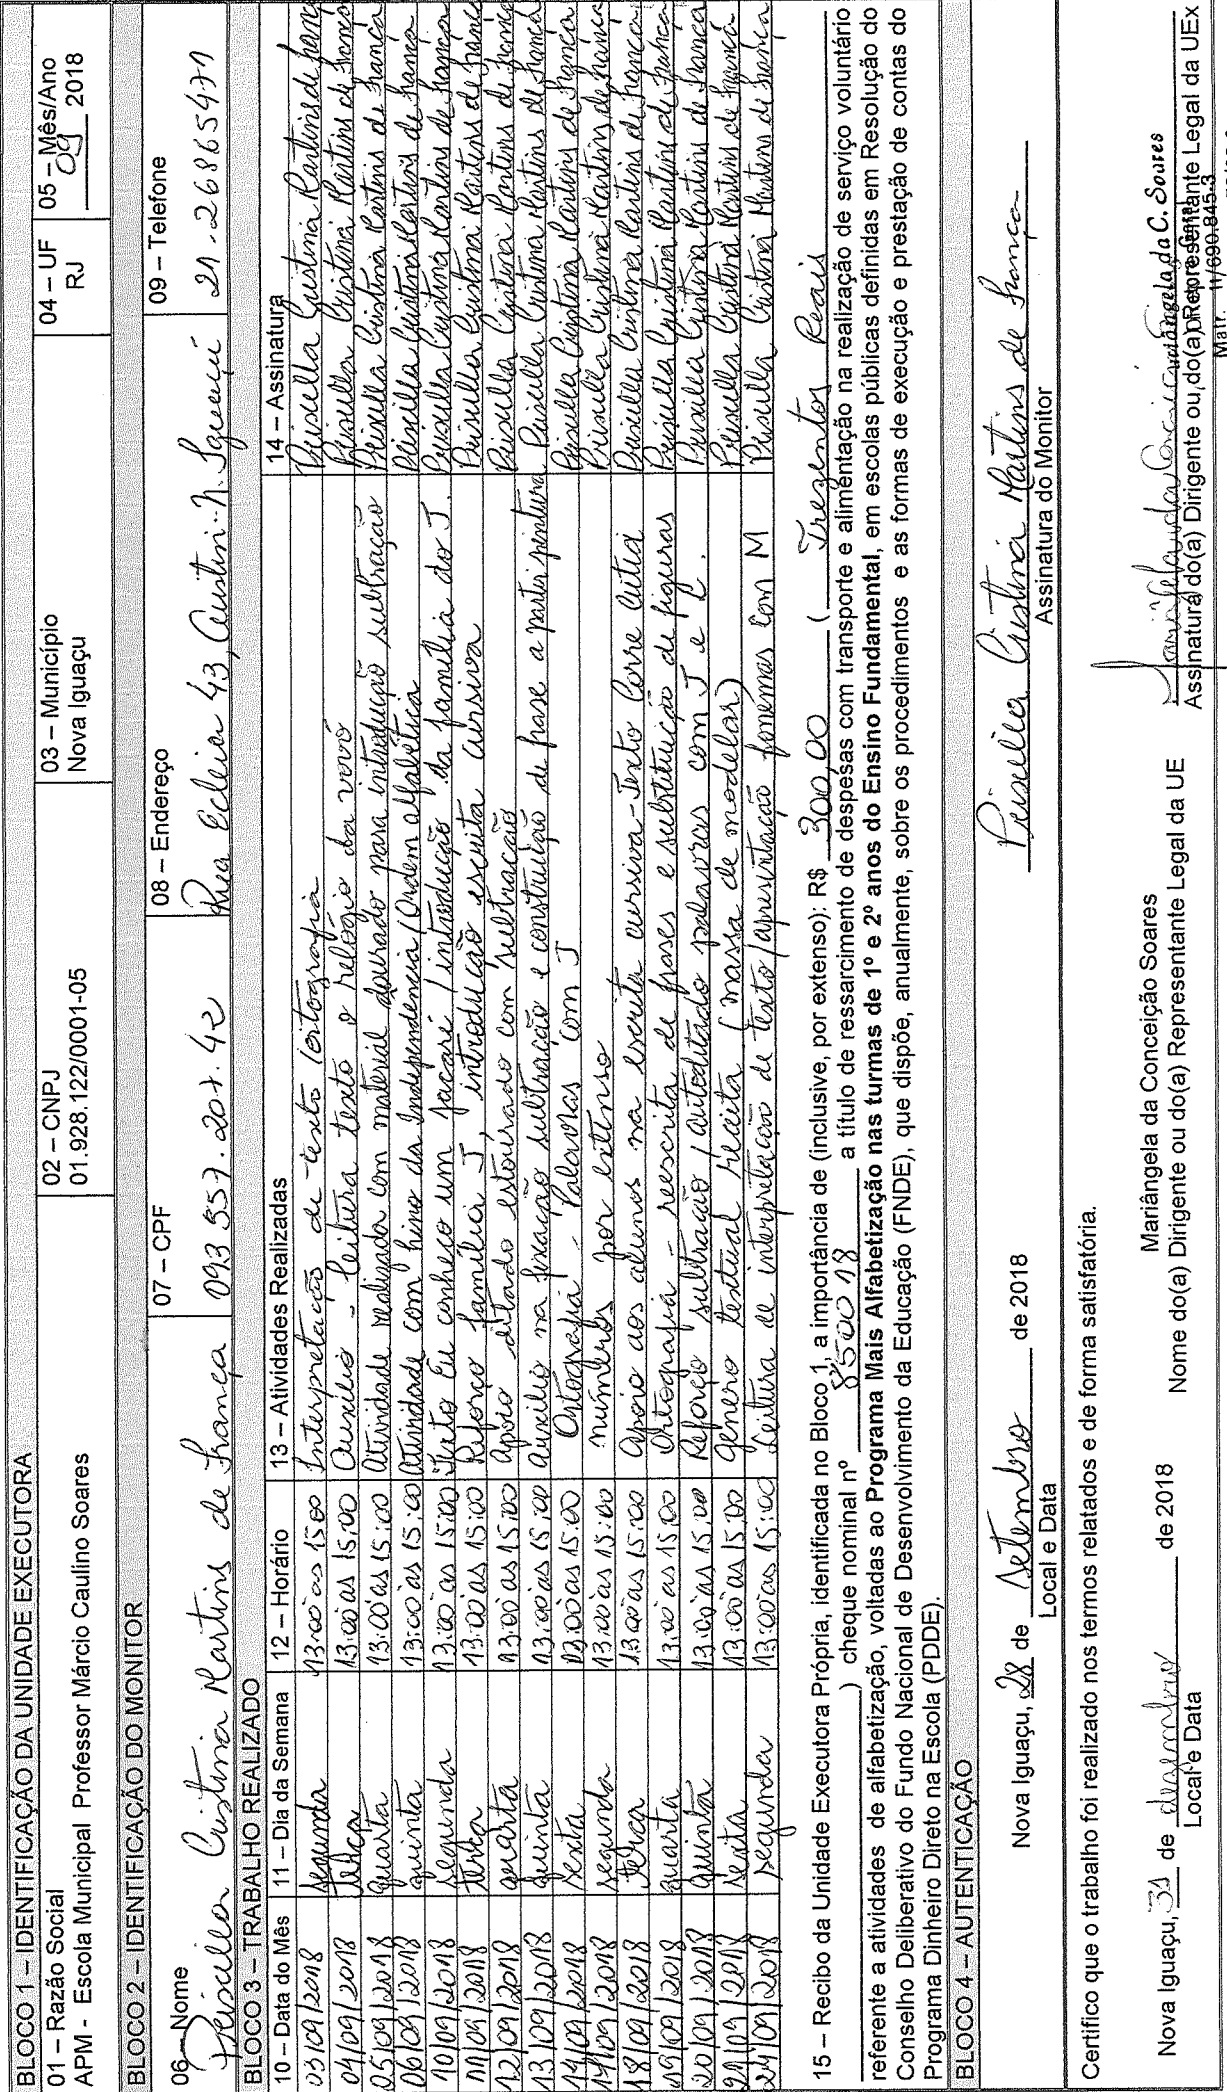 BLOCO 1 – IDENTIFICAÇÃO DA UNIDADE EXECUTORA
01 – Razão Social
APM - Escola Municipal Professor Márcio Caulino Soares
02 – CNPJ
01.928.122/0001-05
03 – Município
Nova Iguaçu
04 – UF
RJ
05 – Mês/Ano
09 2018
BLOCO 2 – IDENTIFICAÇÃO DO MONITOR
06 – Nome
Priscilla Cristina Martins de França
07 – CPF
093 557.207.42
08 – Endereço
Rua Ecleia 43, Austin - N. Iguaçu
09 – Telefone
21-26865471
BLOCO 3 – TRABALHO REALIZADO
10 – Data do Mês 11 – Dia da Semana 12 – Horário 13 – Atividades Realizadas 14 – Assinatura
03/09/2018 segunda 13:00 as 15:00 Interpretação de texto/ortografia Priscilla Cristina Martins de França
04/09/2018 terça 13:00 as 15:00 Auxílio - leitura texto o relógio da vovó Priscilla Cristina Martins de França
05/09/2018 quarta 13:00 às 15:00 Atividade realizada com material dourado para introdução subtração Priscilla Cristina Martins de França
06/09/2018 quinta 13:00 às 15:00 Atividade com hino da Independência (Ordem alfabética Priscilla Cristina Martins de França
10/09/2018 segunda 13:00 às 15:00 Texto Eu conheço um jacaré/introdução da família do J. Priscilla Cristina Martins de França
11/09/2018 terça 13:00 às 15:00 Reforço família J, introdução escrita cursiva Priscilla Cristina Martins de França
12/09/2018 quarta 13:00 às 15:00 Apoio ditado estourado com subtração Priscilla Cristina Martins de França
13/09/2018 quinta 13:00 às 15:00 Auxílio na fixação subtração e construção de frase a partir pintura Priscilla Cristina Martins de França
14/09/2018 sexta 13:00 às 15:00 Ortografia - Palavras com J Priscilla Cristina Martins de França
17/09/2018 segunda 13:00 às 15:00 números por extenso Priscilla Cristina Martins de França
18/09/2018 terça 13:00 às 15:00 Apoio aos alunos na escrita cursiva - Texto Corre cutia Priscilla Cristina Martins de França
19/09/2018 quarta 13:00 às 15:00 Ortografia - reescrita de frases e substituição de figuras Priscilla Cristina Martins de França
20/09/2018 quinta 13:00 às 15:00 Reforço subtração/autoditado palavras com J e L. Priscilla Cristina Martins de França
21/09/2018 sexta 13:00 às 15:00 Gênero textual receita (massa de modelar) Priscilla Cristina Martins de França
24/09/2018 segunda 13:00 às 15:00 Leitura e interpretação de texto/apresentação fonemas com M Priscilla Cristina Martins de França
15 – Recibo da Unidade Executora Própria, identificada no Bloco 1, a importância de (inclusive, por extenso): R$ 300,00 ( Trezentos Reais
) cheque nominal nº 850018 a título de ressarcimento de despesas com transporte e alimentação na realização de serviço voluntário
referente a atividades de alfabetização, voltadas ao Programa Mais Alfabetização nas turmas de 1º e 2º anos do Ensino Fundamental, em escolas públicas definidas em Resolução do
Conselho Deliberativo do Fundo Nacional de Desenvolvimento da Educação (FNDE), que dispõe, anualmente, sobre os procedimentos e as formas de execução e prestação de contas do
Programa Dinheiro Direto na Escola (PDDE).
BLOCO 4 – AUTENTICAÇÃO
Nova Iguaçu, 28 de Setembro de 2018
Local e Data
Priscilla Cristina Martins de França
Assinatura do Monitor
Certifico que o trabalho foi realizado nos termos relatados e de forma satisfatória.
Nova Iguaçu, 31 de dezembro de 2018
Local e Data
Mariângela da Conceição Soares
Nome do(a) Dirigente ou do(a) Representante Legal da UE
Mariângela da C. Soares
Assinatura do(a) Dirigente ou do(a) Representante Legal da UEx
Matr. 11/690.845-3